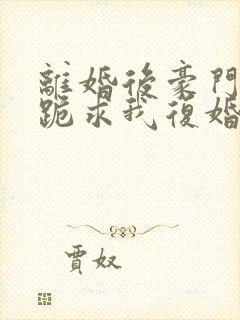 離婚後豪門
跪求我復婚
賈奴